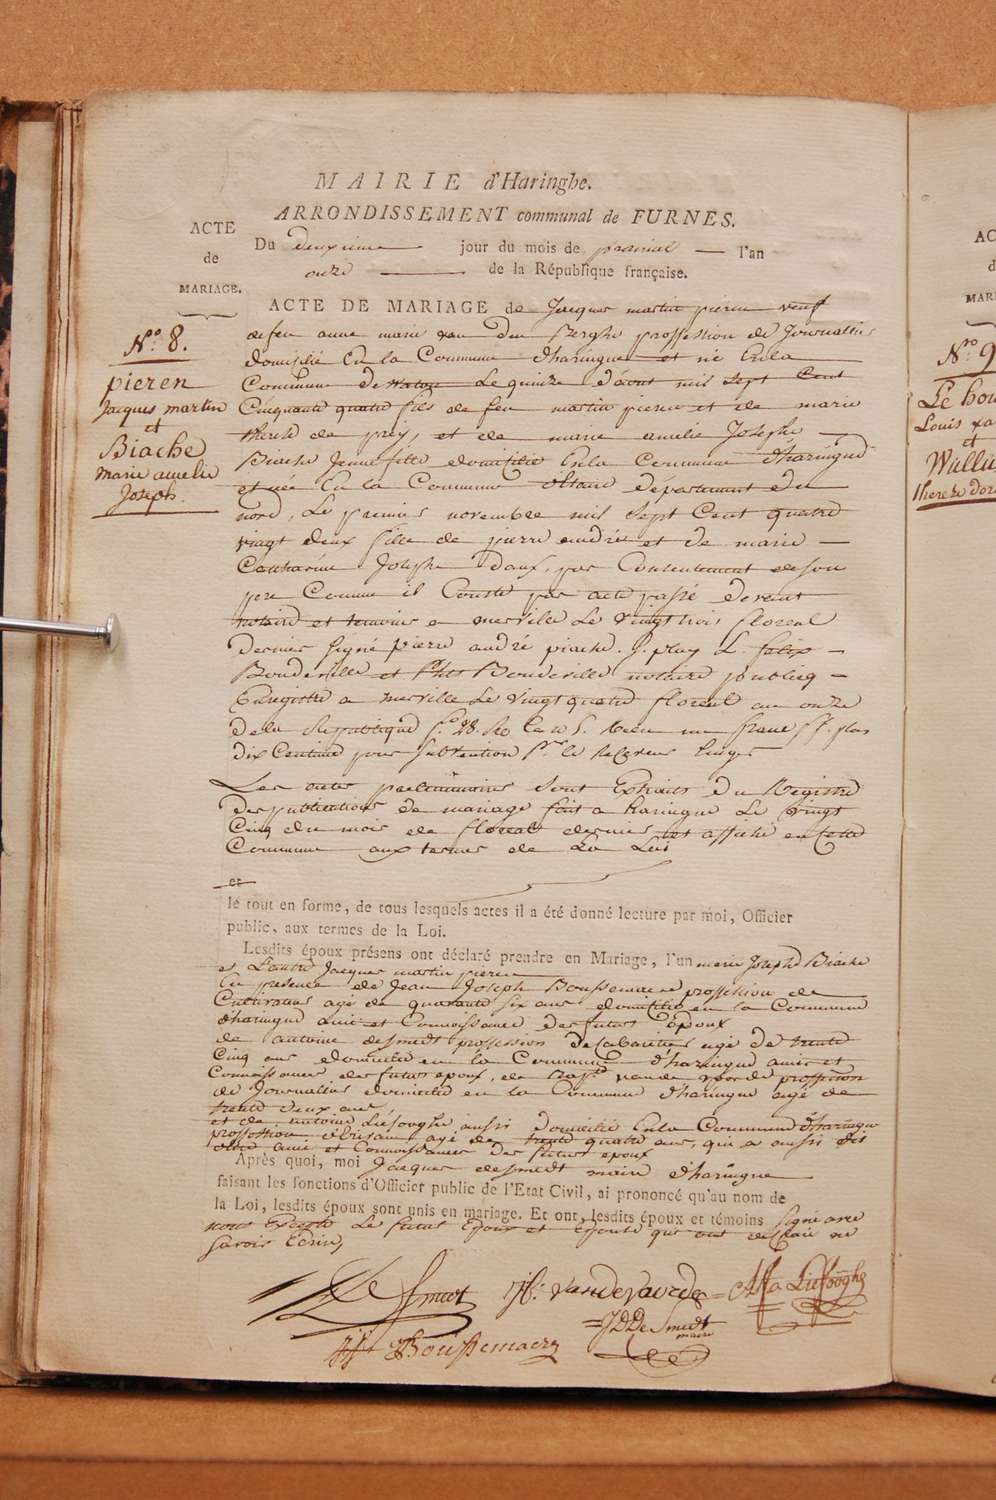 MAIRIE d'Haringhe.
ARRONDISSEMENT communal de FURNES.
ACTE
de
MARIAGE.
Du deuxieme jour du mois de prairial l'an
onze de la République française.
N.o 8.
pieren
Jacques martin
et
Biache
marie amelie
Joseph
ACTE DE MARIAGE de Jacques martin pieren veuf
de feu anne marie van den Berghe proffession de Journallier
domicilié en la Commune d'haringue et né en la
Commune de Watou Le quinze d'aout mil sept Cent
Cinquante quatre fils de feu martin pieren et de marie
therese de prey, et de marie amelie Josephe
Biache Jeune fille domicilie en la Commune d'haringue
et née en la Commune département du
nord, Le premier novembre mil sept Cent quatre
vingt deux fille de pierre andré et de marie
Catharine Josephe Daux, par Consentement de son
pere Comme il Conste par acte passé devant
notaire et temoins a merville Le vingt trois floreal
dernier signé pierre andré piache. J. play L. felix
Bonduville et Bonduville notaire publicq
Enregistré a merville Le vingt quatre floreal an onze
de la Republique f.o 28. Recu un franc plus
dix Centime pour subvention
Les actes preliminaires sont Extraits du Registre
des publications de mariage fait a haringue Le vingt
Cinq du mois de floreal dernier et affiché en Cette
Commune aux termes de La Loi
et
le tout en forme, de tous lesquels actes il a été donné lecture par moi, Officier
public, aux termes de la Loi.
Lesdits époux présens ont déclaré prendre en Mariage, l'un marie Josephe Biache
et L'autre Jacques martin pieren
En presence de Jean Joseph Boussemaere proffession de
Cultivateur agé de quarante six ans domicilié en la Commune
d'haringue amis et Connoissance des futurs Epoux
de antoine desmedt proffession de Cabaretier agé de trente
Cinq ans domicilié en la Commune d'haringue amis et
Connoissance des futurs epoux, de vande voorde proffession
de Journallier domicilié en la Commune d'haringue agé de
trente deux ans
et de antoine Liefooghe aussi domicilié en la Commune d'haringue
proffession d'Artisan agé de trente quatre ans, qui a aussi dis
être amis et Connoissance des futurs epoux
Après quoi, moi Jacques desmedt maire d'haringue
faisant les fonctions d'Officier public de l'Etat Civil, ai prononcé qu'au nom de
la Loi, lesdits époux sont unis en mariage. Et ont, lesdits époux et témoins signé avec
nous Excepté Le futur Epoux et Epouse qui ont declaré ne
savoir Ecrire,
De Smedt
Vandevoorde
Liefooghe
JDDeSmedt
maire
Boussemaere
ACTE
de
MARIAGE
N.ro 9
Le hou
Louis xa
et
Wullu
therese dor